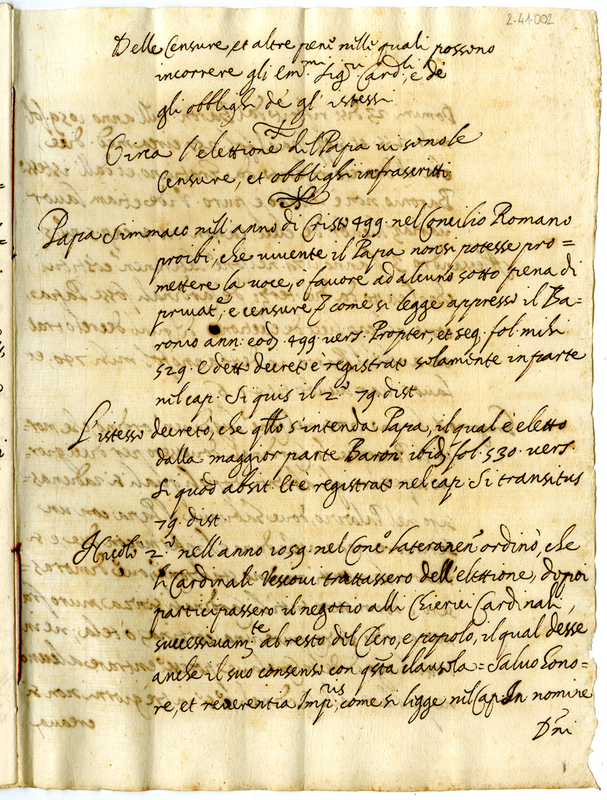 2-41-002
Delle Censure, et altre pene nelle quali possono
incorrere gli Em.mi Sig.ri Card.li, e de
gli obblighi de gl'istessi
Circa l'elettione del Papa vi sono le
Censure, et obblighi infrascritti
Papa Simmaco nell'anno di Cristo 499. nel Concilio Romano
proibì, che vivente il Papa non si potesse pro=
mettere la voce, o favore ad alcuno sotto pena di
privat.e, e censure come si legge appresso il Ba=
ronio ann. eod. 499. vers. Propter, et seq. fol. mihi
529. E detto decreto è registrato solamente in parte
nel cap. Si quis il 2.o 79. dist.
L'istesso decretò, che qllo s'intenda Papa, il qual è eletto
dalla maggior parte Baron. ibid. fol. 530. vers.
Si quod absit. Et è registrato nel cap. Si transitus
79. dist.
Nicolò 2.o nell'anno 1059. nel Conc.o lateranen. ordinò, che
li Cardinali Vescovi trattassero dell'elettione, dopoi
participassero il negotio alli Chierici Cardinali,
successivam.te al resto del Clero, e popolo, il qual desse
anche il suo consenso con qsta clausola = Salvo hono-
re, et reverentia Imp.us, come si legge nel Cap. In nomine
Dni